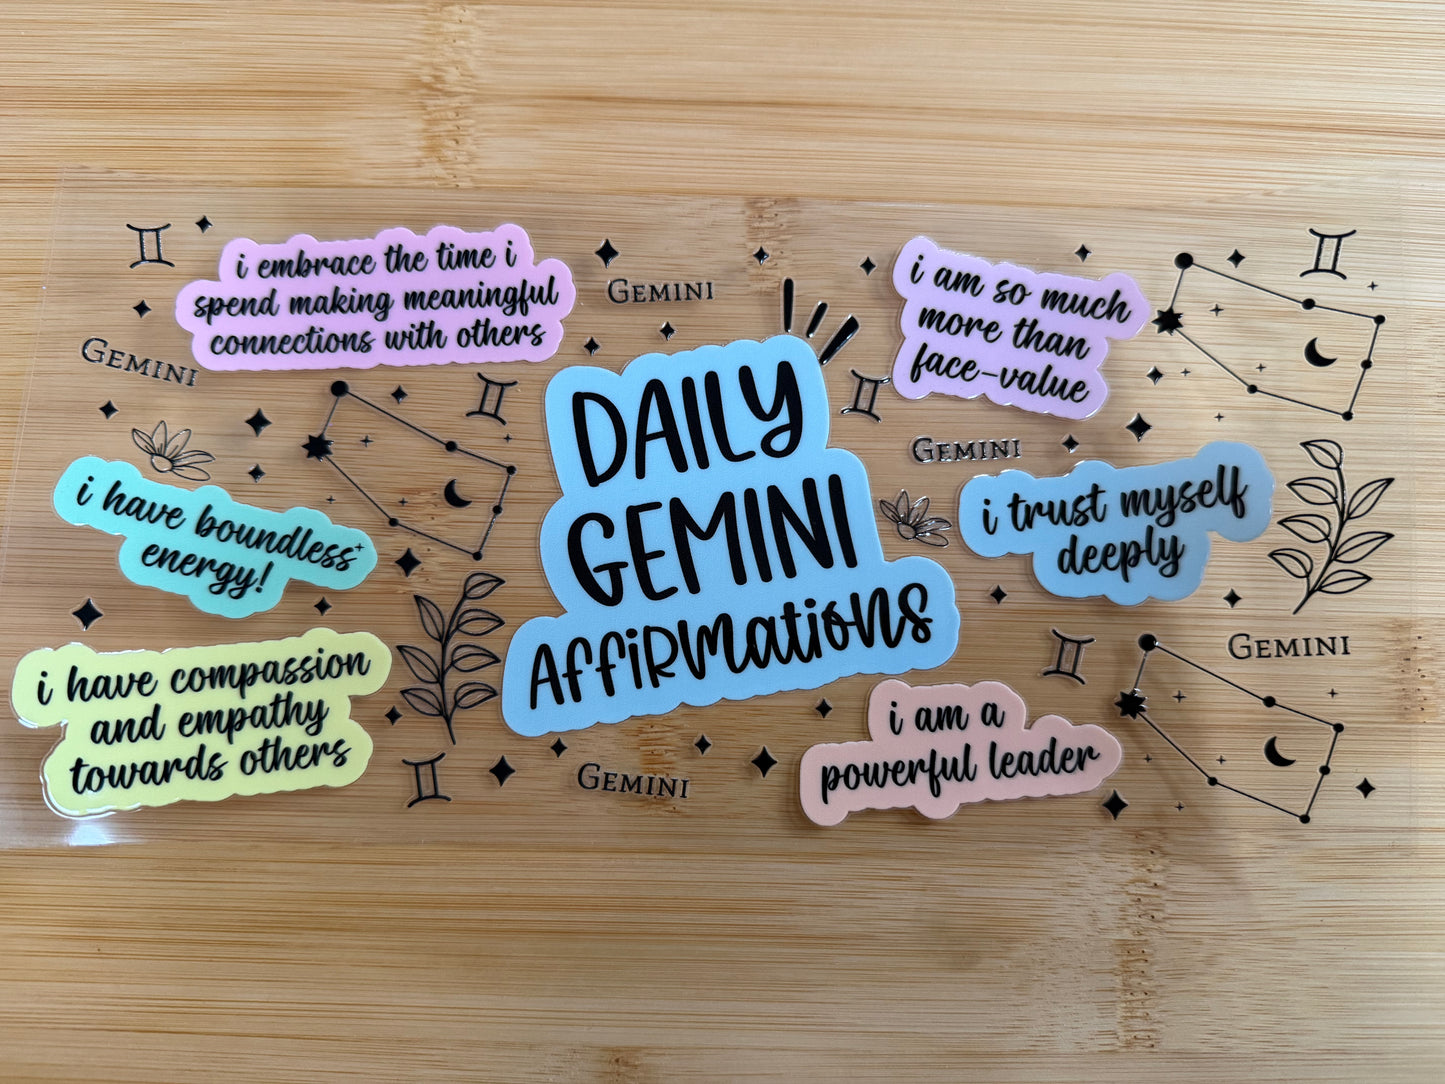 i embrace the time i
spend making meaningful
connections with others
GEMINI
i am so much
more than
face-value
GEMINI
DAILY
GEMINI
AFFIRMATIONS
GEMINI
i have boundless
energy!
i trust myself
deeply
GEMINI
i have compassion
and empathy
towards others
i am a
powerful leader
GEMINI